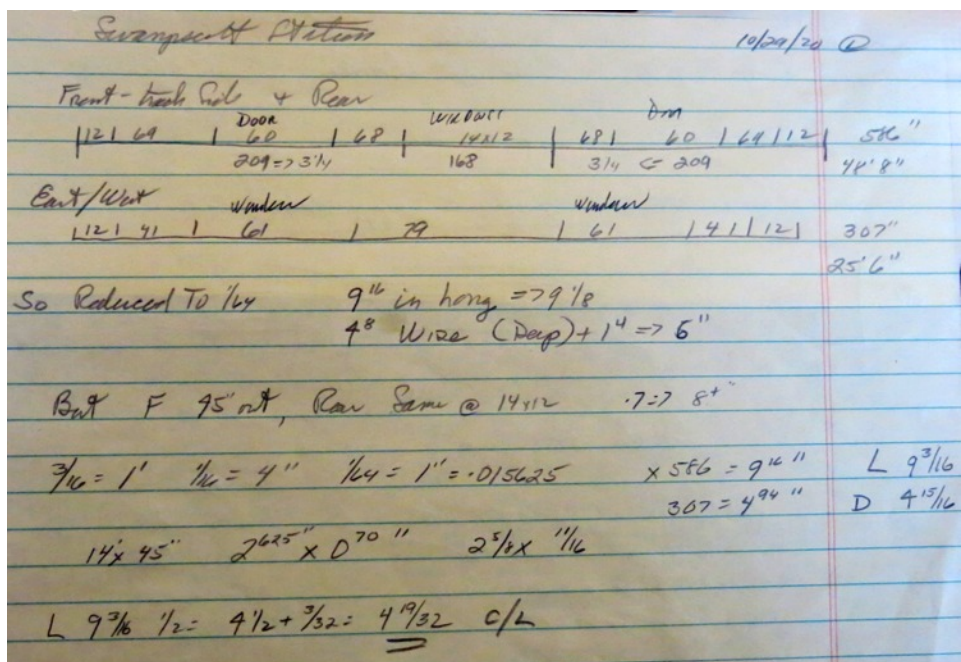 Swampscott Station 10/29/20 ①
Front - track Side + Rear
DOOR WINDOWS Door
|12| 69 | 60 | 68 | 14x12 | 68 | 60 | 69 | 12 | 586"
209 => 3 1/4 168 3 1/4 <= 209 48' 8"
East/West Window Window
|12| 41 | 61 | 79 | 61 | 41 | 12 | 307"
25'6"
So Reduced To 1/64 9 16 in long => 9 1/8
4 8 Wide (Deep) + 1 4 => 6"
But F 45" out, Rear Same @ 14x12 .7 => 8+"
3/16 = 1' 1/16 = 4" 1/64 = 1" = .015625 x 586 = 9 16" L 9 3/16
307 = 4 94" D 4 15/16
14' x 45" 2 625" x 0 70" 2 5/8 x 11/16
L 9 3/16 1/2 = 4 1/2 + 3/32 = 4 19/32 C/L